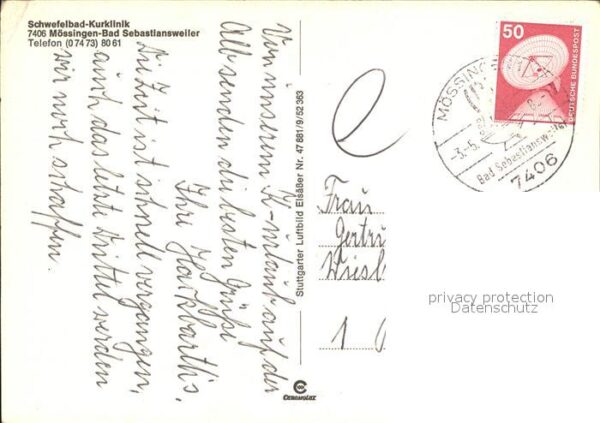 Schwefelbad-Kurklinik
7406 Mössingen-Bad Sebastiansweiler
Telefon (0 74 73) 80 61
Von unserem K-urlaub auf der
Alb senden die besten Grüße
Ihre Hackbarth's,
Die Zeit ist schnell vergangen,
auch das letzte Drittel werden
wir noch schaffen.
Stuttgarter Luftbild Elsäßer Nr. 47 881/9/52 363
CEKUMOLAT
50
DEUTSCHE BUNDESPOST
MÖSSING
-3.-5.
Bad Sebastiansweiler
7406
Frau
Gertru
Wiesb
1
privacy protection
Datenschutz